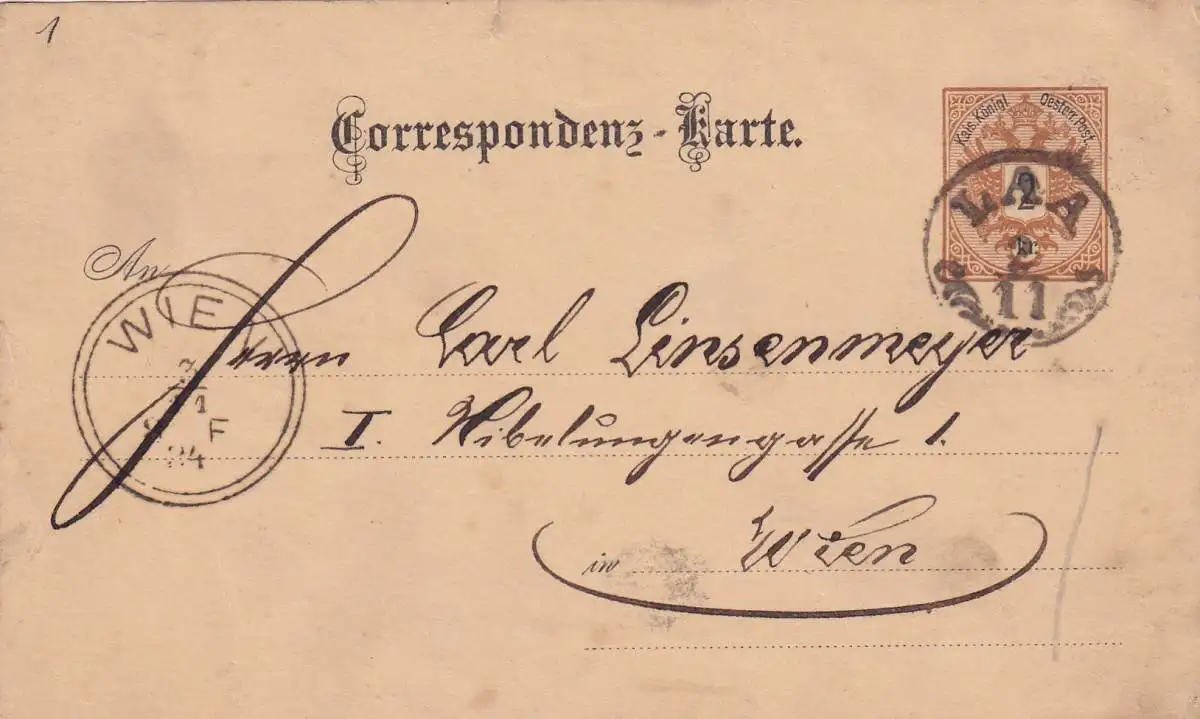 1
Correspondenz-Karte.
Kais. Königl. Oesterr. Post.
2
kr
LAA
2
11
An
WIEN
F
84
Herrn Carl Linsenmeyer
I. Nibelungengasse 1.
in Wien